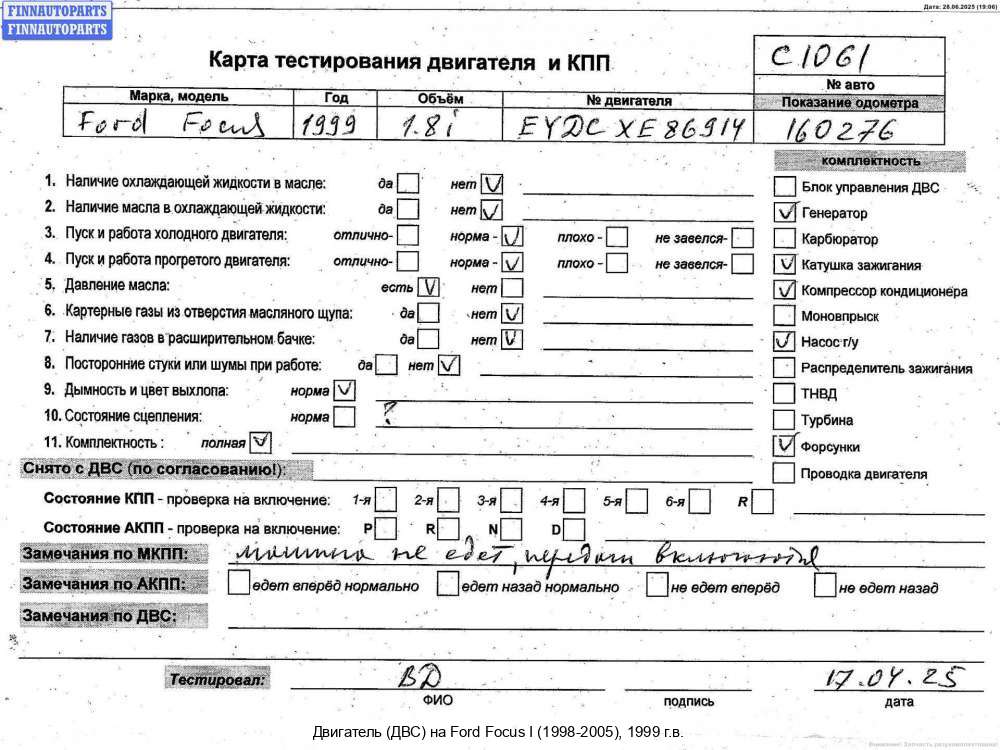 FINNAUTOPARTS
FINNAUTOPARTS
Дата: 26.06.2025 (19:06)
Карта тестирования двигателя и КПП
С1061
№ авто
Марка, модель Год Объём № двигателя Показание одометра
Ford Focus 1999 1.8i EYDC XE86914 160276
комплектность
1. Наличие охлаждающей жидкости в масле: да нет V
Блок управления ДВС
2. Наличие масла в охлаждающей жидкости: да нет V
V Генератор
3. Пуск и работа холодного двигателя: отлично- норма - V плохо - не завелся-
Карбюратор
4. Пуск и работа прогретого двигателя: отлично- норма - V плохо - не завелся-
V Катушка зажигания
5. Давление масла: есть V нет
V Компрессор кондиционера
6. Картерные газы из отверстия масляного щупа: да нет V
Моновпрыск
7. Наличие газов в расширительном бачке: да нет V
V Насос г/у
8. Посторонние стуки или шумы при работе: да нет V
Распределитель зажигания
9. Дымность и цвет выхлопа: норма V
ТНВД
10. Состояние сцепления: норма ?
Турбина
11. Комплектность : полная V
V Форсунки
Снято с ДВС (по согласованию!):
Проводка двигателя
Состояние КПП - проверка на включение: 1-я 2-я 3-я 4-я 5-я 6-я R
Состояние АКПП - проверка на включение: P R N D
Замечания по МКПП: машина не едет, передачи включаются
Замечания по АКПП: едет вперёд нормально едет назад нормально не едет вперёд не едет назад
Замечания по ДВС:
Тестировал: ВД 17.04.25
ФИО подпись дата
Двигатель (ДВС) на Ford Focus I (1998-2005), 1999 г.в.